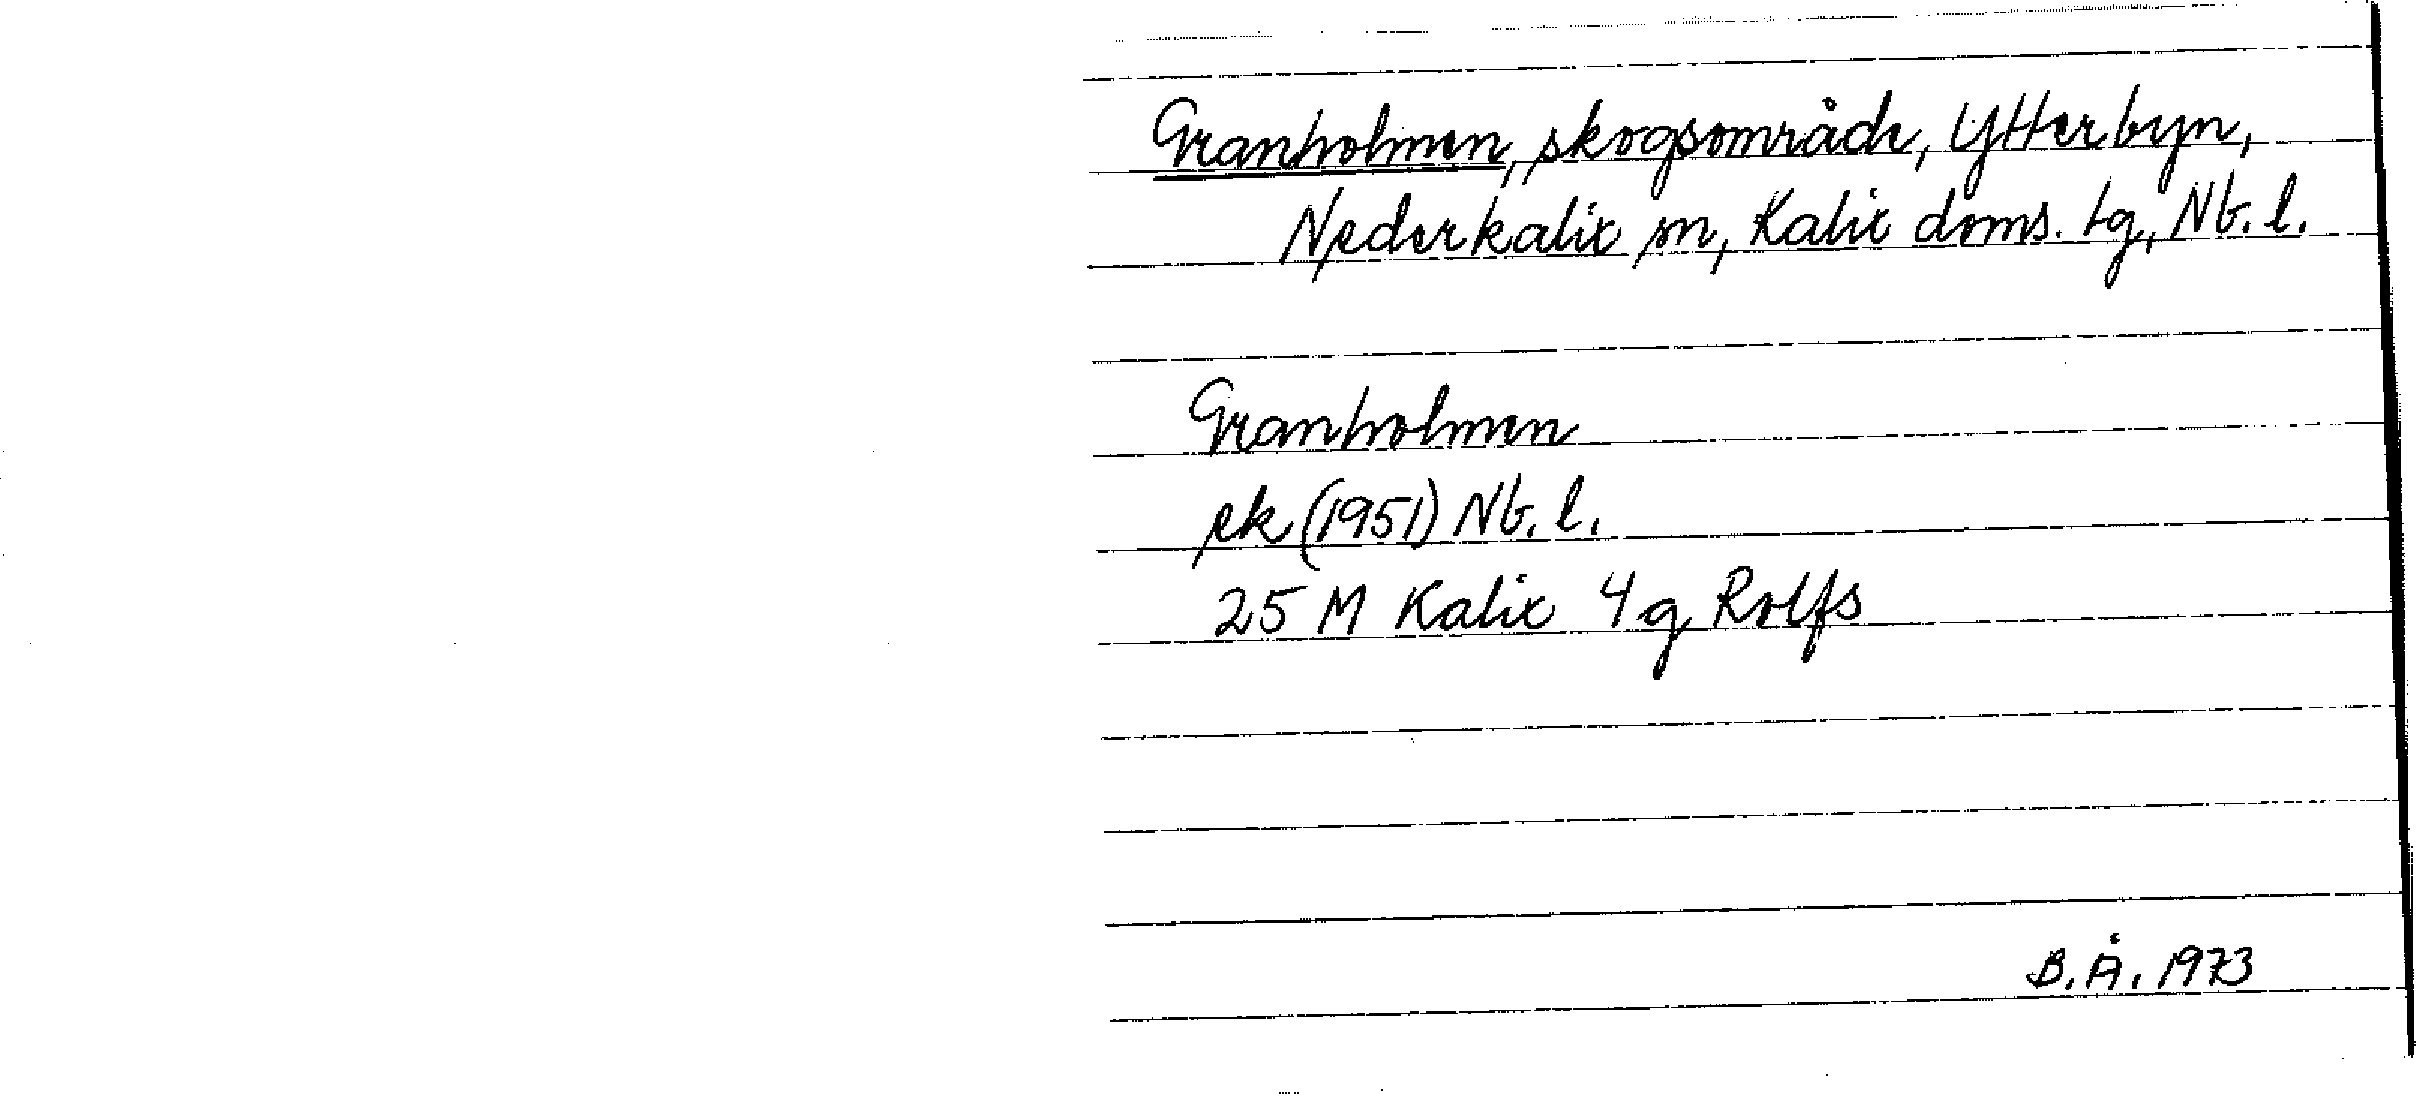 Granholmen, skogsområde, Ytterbyn,
Nederkalix sn, Kalix doms. tg, Nb. l.
Granholmen
ek (1951) Nb. l.
25 M Kalix 4g Rolfs
B. Å. 1973